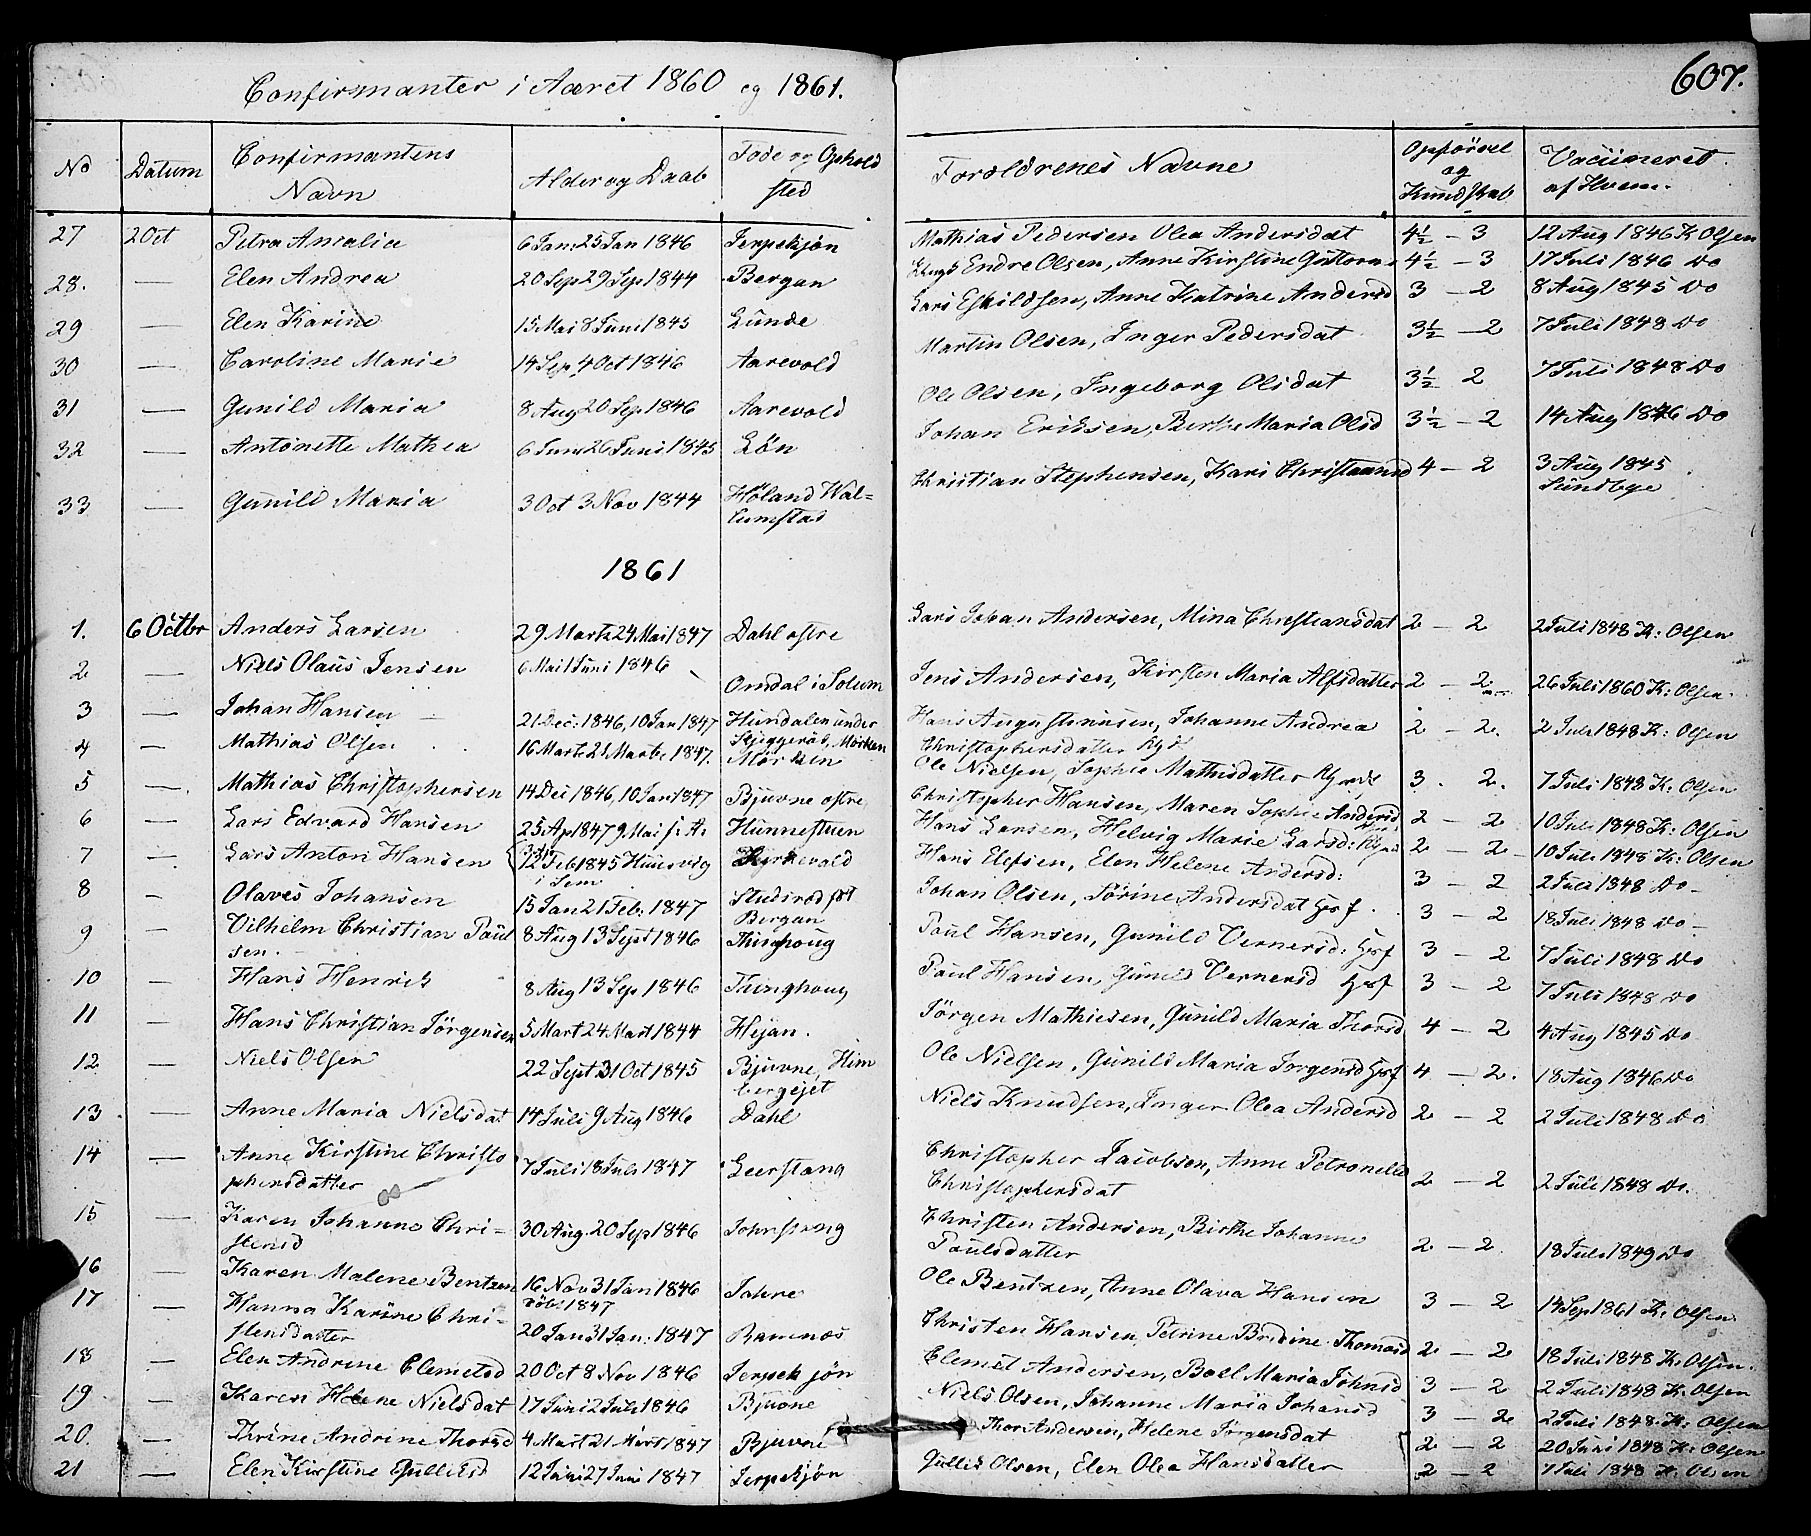 Confirmanter i Aaret 1860 og 1861.
607.
No Datum Confirmantens Navn Alder og Daab Føde og Ophold sted Foroldrenes Navne Opförsel og Kundskab Vacsineret af Hvem.
27 2 Oct Petra Amalia 6 Jan 25 Jan 1846 Jerpekjøn Mathias Pedersen Olea Andersdat 4½ - 3 12 Aug 1846 K Olsen
28. — Elen Andrea 20 Sep 29 Sep 1844 Bergan Endre Olsen, Anne Kirstine Guttorms 4½ - 3 17 Juli 1846 Do
29 — Elen Karine 15 Mai 8 Juni 1845 Lunde Lars Eskildsen, Anne Katrine Andersd 3 - 2 8 Aug 1845 Do
30 — Caroline Marie 14 Sep 4 Oct 1846 Aarevold Martin Olsen, Inger Pedersdat 3½ - 2 7 Juli 1848 Do
31 — Gunild Maria 8 Aug 20 Sep 1846 Aarevold Ole Olsen, Ingeborg Olsdat 3½ 2 7 Juli 1848 Do
32 — Antonette Mathea 6 Juni 26 Juni 1845 Løn Johan Eriksen, Berthe Maria Olsd 3½ - 2 14 Aug 1846 Do
33 — Gunild Maria 3 Oct 3 Nov 1844 Høland Wal=
lumstad Christian Stephensen, Kari Christiansd 4 - 2 3 Aug 1845
Sundbye
1861
1. 6 Octbr Anders Larsen 29 Marts 24 Mai 1847 Dahl østre Lars Johan Andersen, Mina Christiansdat 2 - 2 2 Juli 1848 K: Olsen
2 — Niels Olaus Jensen 6 Mai 1 Juni 1846 Omdal i Solum Jens Andersen, Kirsten Maria Alfsdatter 2 - 2 26 Juli 1860 K: Olsen.
3 — Johan Hansen 21 Dec: 1846, 10 Jan 1847 Hundalen under Hans Augustinusen, Johanne Andrea
Christophersdatter 2 - 2. 2 Juli 1848 K: Olsen
4 — Mathias Olsen 16 Mart 21 Marts 1847. Mörken Ole Nielsen, Sophie Mathisdatter 3. 2. 7 Juli 1848 K: Olsen
5 — Mathias Christophersen 14 Dec 1846, 10 Jan 1847 Bjuvne østre Christopher Hansen, Maren Sophie Andersd 2 - 2 10 Juli 1848 K: Olsen
6 — Lars Edvard Hansen 25 Ap 1847 9 Mai s. A. Hunnestuen Hans Larsen, Helvig Marie Larsd: 2 - 2 10 Juli 1848 K: Olsen
7 — Lars Anton Hansen 12 Feb 1845
i Sem Hans Elefsen, Elen Helene Andersd: 3 - 2 2 Juli 1848 Do
8 — Olaves Johansen 15 Jan 21 Feb: 1847 Bergan Johan Olsen, Sørine Andersdat 3 - 2 18 Juli 1848 Do
9 — Vilhelm Christian Paul
sen. 8 Aug 13 Sept 1846 Thinghoug Paul Hansen, Gunild Vernersd: 3 - 2 7 Juli 1848 Do
10 — Hans Henrik 8 Aug 13 Sep 1846 Thinghoug Paul Hansen, Gunild Vernersd 3 - 2 7 Juli 1848 Do
11 — Hans Christian Jörgensen 5 Mart 24 Mart 1844 Hejan. Jörgen Mathiesen, Gunild Maria Thorsd 4 - 2 4 Aug 1845 Do
12 — Niels Olsen 22 Sept 31 Oct 1845 Bjuvne, Him
bergejet Ole Nielsen, Gunild Maria Jorgensd 4 - 2. 18 Aug 1846 Do
13 — Anne Maria Nielsdat 14 Juli 9 Aug 1846 Dahl Niels Knudsen, Inger Olea Andersd 2 - 2 2 Juli 1848 Do
14 — Anne Kirstine Christo
phersdatter 7 Juli 18 Juli 1847 Leerstang Christopher Jacobsen, Anne Petronelle
Christophersdat 2 - 2 2 Juli 1848 Do.
15 — Karen Johanne Chri-
stensd 30 Aug. 20 Sep 1846 Johrstang Christen Andersen, Birthe Johanne
Paulsdatter 2 - 2. 18 Juli 1849 Do
16 — Karen Malene Bentzen 16 Nov 31 Jan 1846
1847 Jahre Ole Bentzen, Anne Olava Hansen 3 - 2 14 Sep 1861 K: Olsen
17 — Hanna Karine Chri-
stensdatter 20 Jan 31 Jan. 1847 Ramnæs Christen Hansen Petrine Bredine Thomasd 2 - 2 18 Juli 1848 K: Olsen.
18 — Elen Andrine Clemetsd 20 Oct 8 Nov 1846 Jerpekjøn Clemet Andersen, Boel Maria Johnsd 3 - 2 2 Juli 1848 K. Olsen
19 — Karen Helene Nielsdat 17 Juni 2 Juli 1846 Bjuvne Niels Olsen, Johanne Maria Johansd 3 - 2 2 Juli 1848. K: Olsen
20. — Thrine Andrine Thorsd 4 Mart 21 Mart 1847 Bjuvne Thor Andersen, Helene Jørgensdat 2 - 2 20 Juni 1848 K: Olsen
21 — Elen Kirstine Gulliksd 12 Juni 27 Juni 1847 Jerpekjøn Gullik Olsen, Elen Olea Hansdatter 2 - 2 7 Juli 1848 K. Olsen